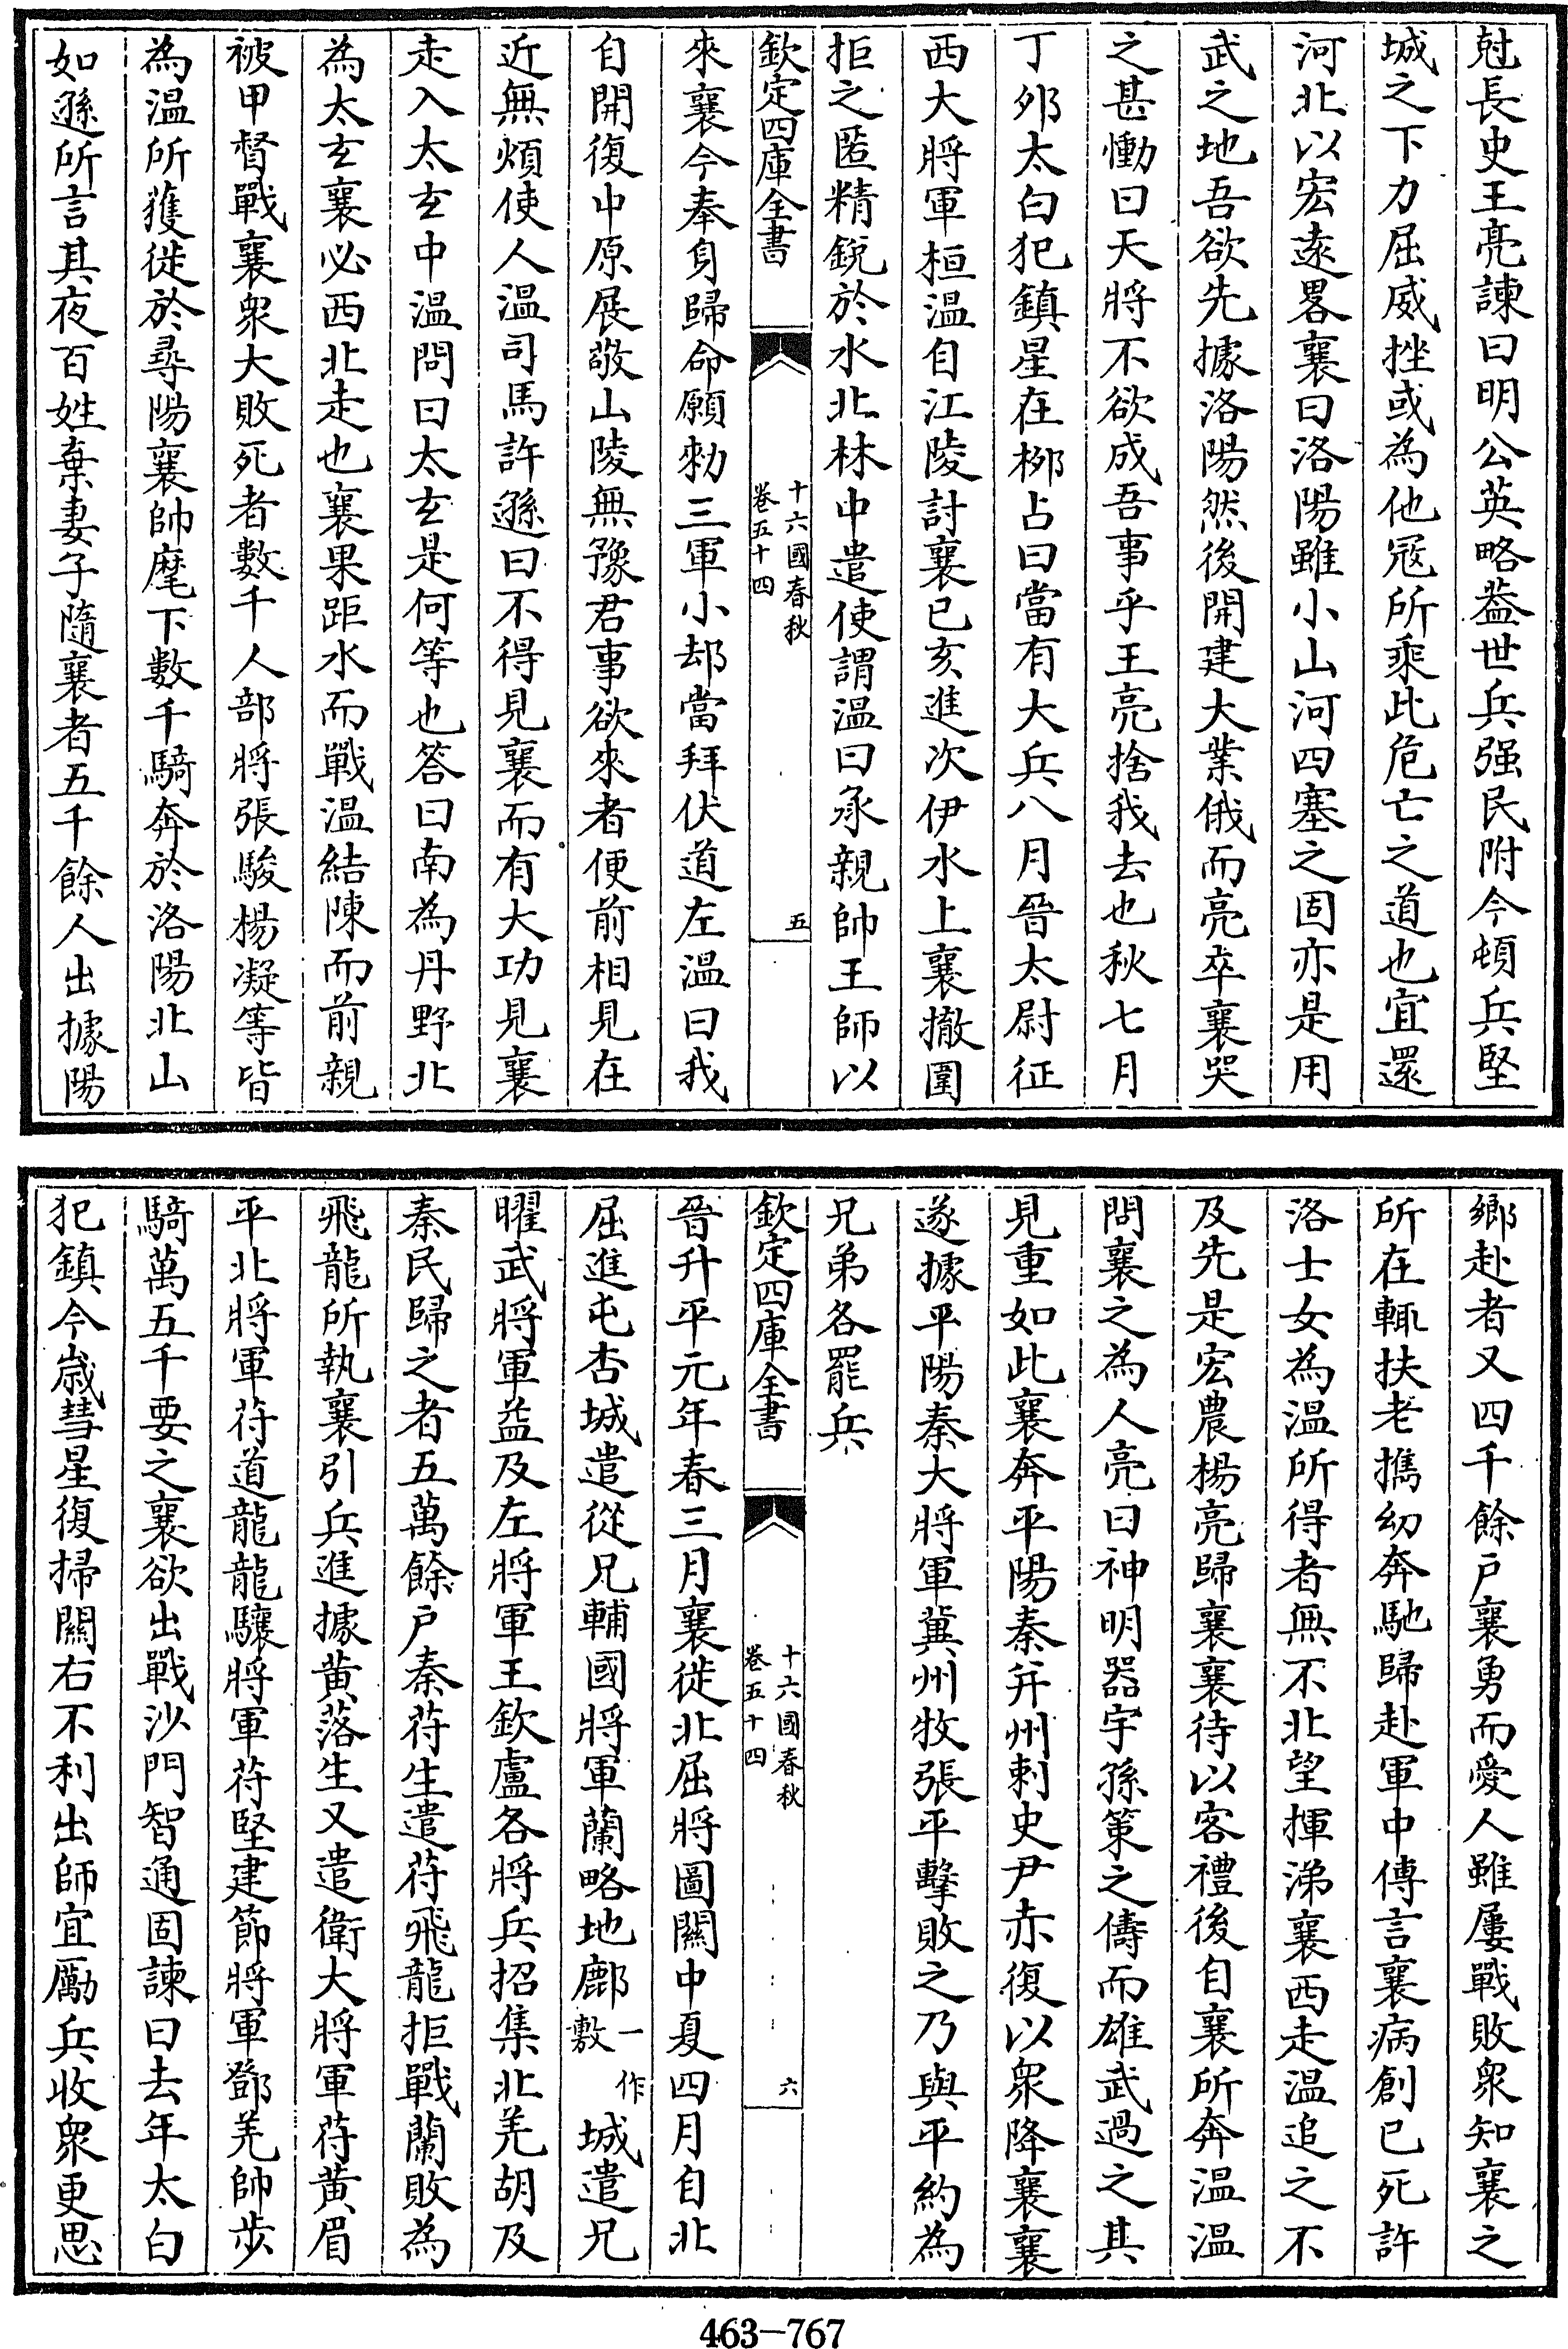 尅長史王亮諫曰明公英略葢世兵强民附今頓兵堅
城之下力屈威挫或為他宼所乘此危亡之道也宜還
河北以宏逺畧襄曰洛陽雖小山河四塞之固亦是用
武之地吾欲先據洛陽然後開建大業俄而亮卒襄哭
之甚慟曰天將不欲成吾事乎王亮捨我去也秋七月
丁夘太白犯鎮星在栁占曰當有大兵八月晉太尉征
西大將軍桓温自江陵討襄已亥進次伊水上襄撤圍
拒之匿精鋭於水北林中遣使謂温曰承親帥王師以
欽定四庫全書
十六國春秋
卷五十四
五
來襄今奉身歸命願勑三軍小却當拜伏道左温曰我
自開復中原展敬山陵無豫君事欲來者便前相見在
近無煩使人温司馬許遜曰不得見襄而有大功見襄
走入太玄中温問曰太玄是何等也答曰南為丹野北
為太玄襄必西北走也襄果距水而戰温結陳而前親
被甲督戰襄衆大敗死者數千人部將張駿楊凝等皆
為温所獲徙於尋陽襄帥麾下數千騎奔於洛陽北山
如遜所言其夜百姓棄妻子隨襄者五千餘人出據陽
鄉赴者又四千餘户襄勇而愛人雖屢戰敗衆知襄之
所在輒扶老擕幼奔馳歸赴軍中傳言襄病創已死許
洛士女為温所得者無不北望揮涕襄西走温追之不
及先是宏農楊亮歸襄襄待以客禮後自襄所奔温温
問襄之為人亮曰神明器宇孫策之儔而雄武過之其
見重如此襄奔平陽秦并州刺史尹赤復以衆降襄襄
遂據平陽秦大將軍冀州牧張平擊敗之乃與平約為
兄弟各罷兵
欽定四庫全書
十六國春秋
卷五十四
六
晉升平元年春三月襄徙北屈將圖關中夏四月自北
屈進屯杏城遣從兄輔國將軍蘭略地鄜一作敷城遣兄
曜武將軍益及左將軍王欽盧各將兵招集北羌胡及
秦民歸之者五萬餘户秦苻生遣苻飛龍拒戰蘭敗為
飛龍所執襄引兵進據黄落生又遣衛大將軍苻黄眉
平北將軍苻道龍龍驤將軍苻堅建節將軍鄧羌帥步
騎萬五千要之襄欲出戰沙門智通固諫曰去年太白
犯鎮今嵗彗星復掃關右不利出師宜厲兵收衆更思
463-767